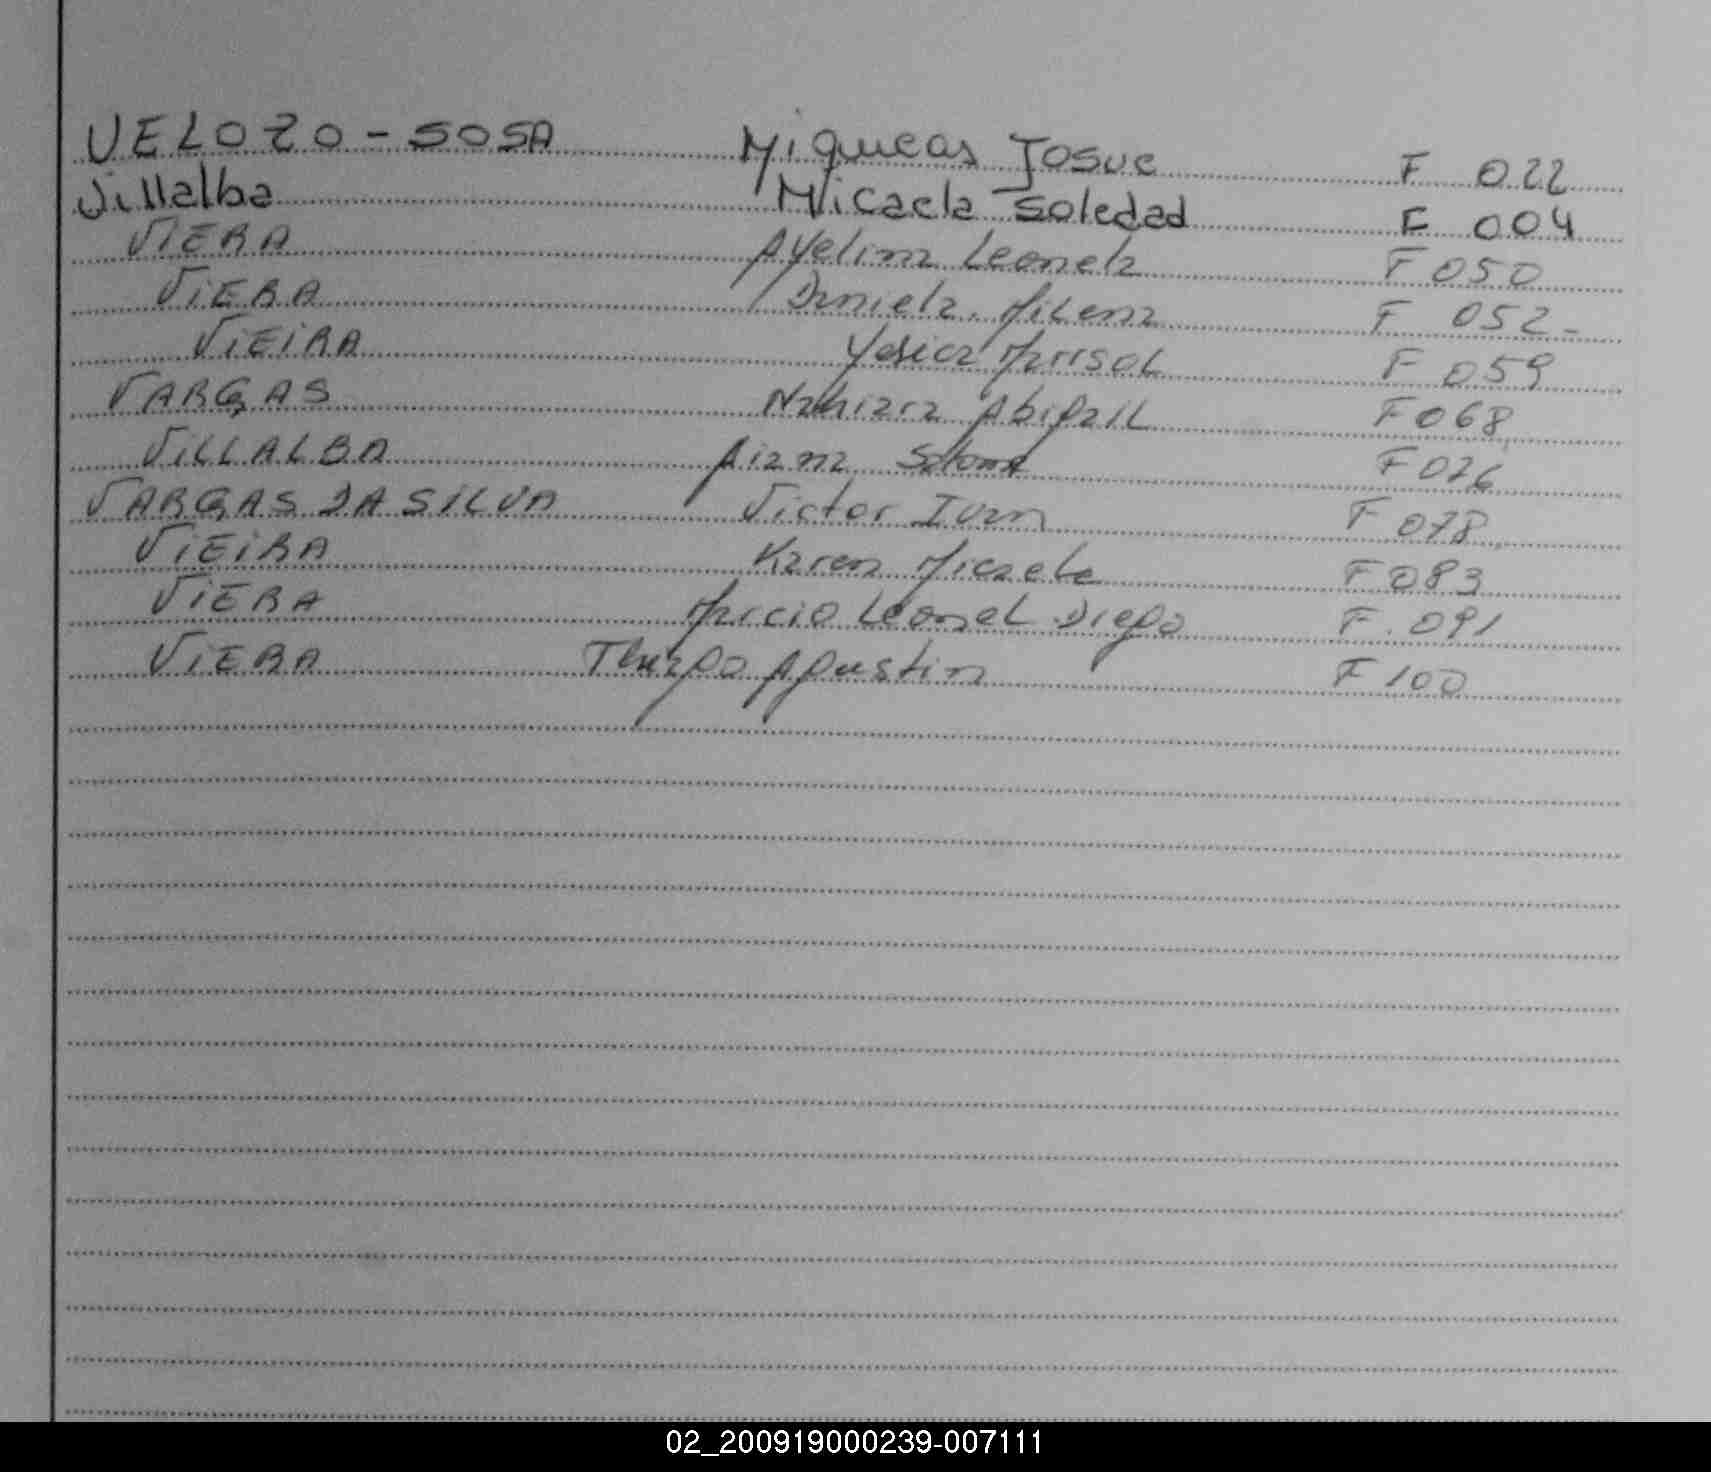 VELOZO - SOSA Miqueas Josue F 022
Villalba Micaela Soledad F 004
VIERA Ayelina Leonela F 050
ViERA Daniela Milena F 052-
ViEiRA Yesica Marisol F 059
VARGAS Nahiara Abigail F 068
ViLLALBA Aiana F 076
VARGAS DA SILVA Victor Ivan F 078
ViEiRA Karen Micaela F 083
ViERA Marcio Leonel Diego F. 091
ViERA Thiago Agustin F 100
02_200919000239-007111